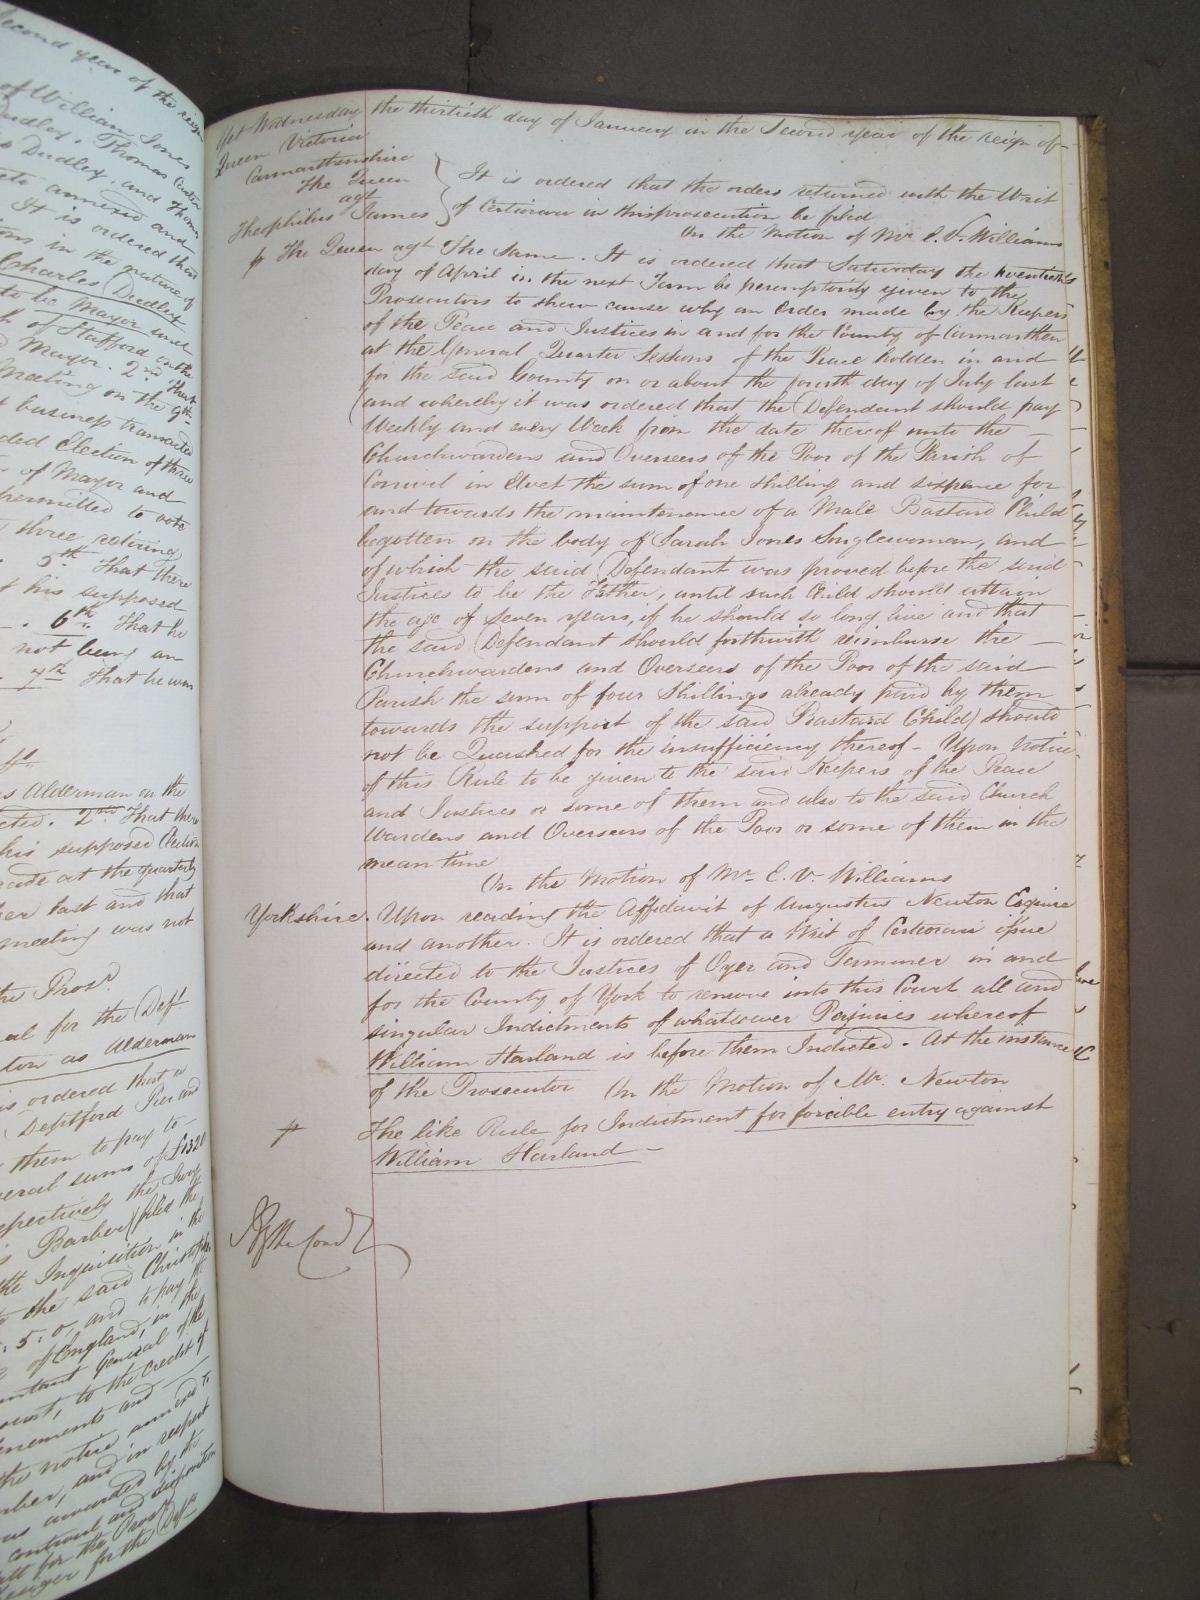 second year of the reign
of William Jones
Dudley, Thomas
Dudley, and Thomas
annexed and
It is ordered that
in the nature of
Charles Dudley
to be Mayor and
of Stafford on the
Mayor. 2nd That
Meeting on the 9th
business transacted
Election of three
of Mayor and
permitted to vote
three retiring
5th That there
his supposed
6th That he
not being an
7th That he was
as Alderman on the
2nd That the
his supposed Election
made at the quarterly
last and that
meeting was not
the Prosr
for the Deft
as Alderman
is ordered that a
Deptford Pier and
them to pay to
several sums of £1320
respectively the
Barber filed the
the Inquisition in the
to the said Christopher
: 5 : 0, and to pay the
of England, in the
General of the
to the credit of
and
the notice annexed to
and in respect
awarded by the
control and disposition
for the Prosr
for the Deft
Yet Wednesday the thirtieth day of January in the Second year of the reign of
Queen Victoria
Carmarthenshire
The Queen
agt
Theophilus James
It is ordered that the orders returned with the Writ
of Certiorari in this prosecution be filed
On the Motion of Mr E. V. Williams
The Queen agt The Same. It is ordered that Saturday the twentieth
day of April in the next Term be peremptorily given to the
Prosecutors to shew cause why an Order made by the Keepers
of the Peace and Justices in and for the County of Carmarthen
at the General Quarter Sessions of the Peace holden in and
for the said County on or about the fourth day of July last
(and whereby it was ordered that the Defendant should pay
Weekly and every Week from the date thereof unto the
Churchwardens and Overseers of the Poor of the Parish of
Conwil in Elvet the sum of one shilling and sixpence for
and towards the maintenance of a Male Bastard Child
begotten on the body of Sarah Jones Singlewoman, and
of which the said Defendant was proved before the said
Justices to be the Father, until such Child should attain
the age of seven years, if he should so long live and that
the said Defendant should forthwith reimburse the
Churchwardens and Overseers of the Poor of the said
Parish the sum of four Shillings already paid by them
towards the support of the said Bastard Child) should
not be Quashed for the insufficiency thereof - Upon Notice
of this Rule to be given to the said Keepers of the Peace
and Justices or some of them and also to the said Church
Wardens and Overseers of the Poor or some of them in the
mean time
On the Motion of Mr E. V. Williams
Yorkshire. Upon reading the Affidavit of Augustus Newton Esquire
and another. It is ordered that a Writ of Certiorari issue
directed to the Justices of Oyer and Terminer in and
for the County of York to remove into this Court all and
singular Indictments of whatsoever Perjuries whereof
William Harland is before them Indicted. At the instance
of the Prosecutor On the Motion of Mr. Newton
The like Rule for Indictment for forcible entry against
William Harland
By the Court